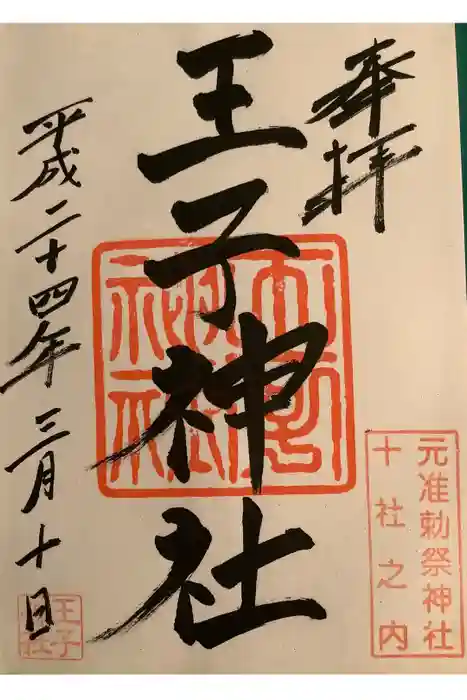 奉拝
元准勅祭神社
十社之内
王子神社
平成二十四年三月十日
王子